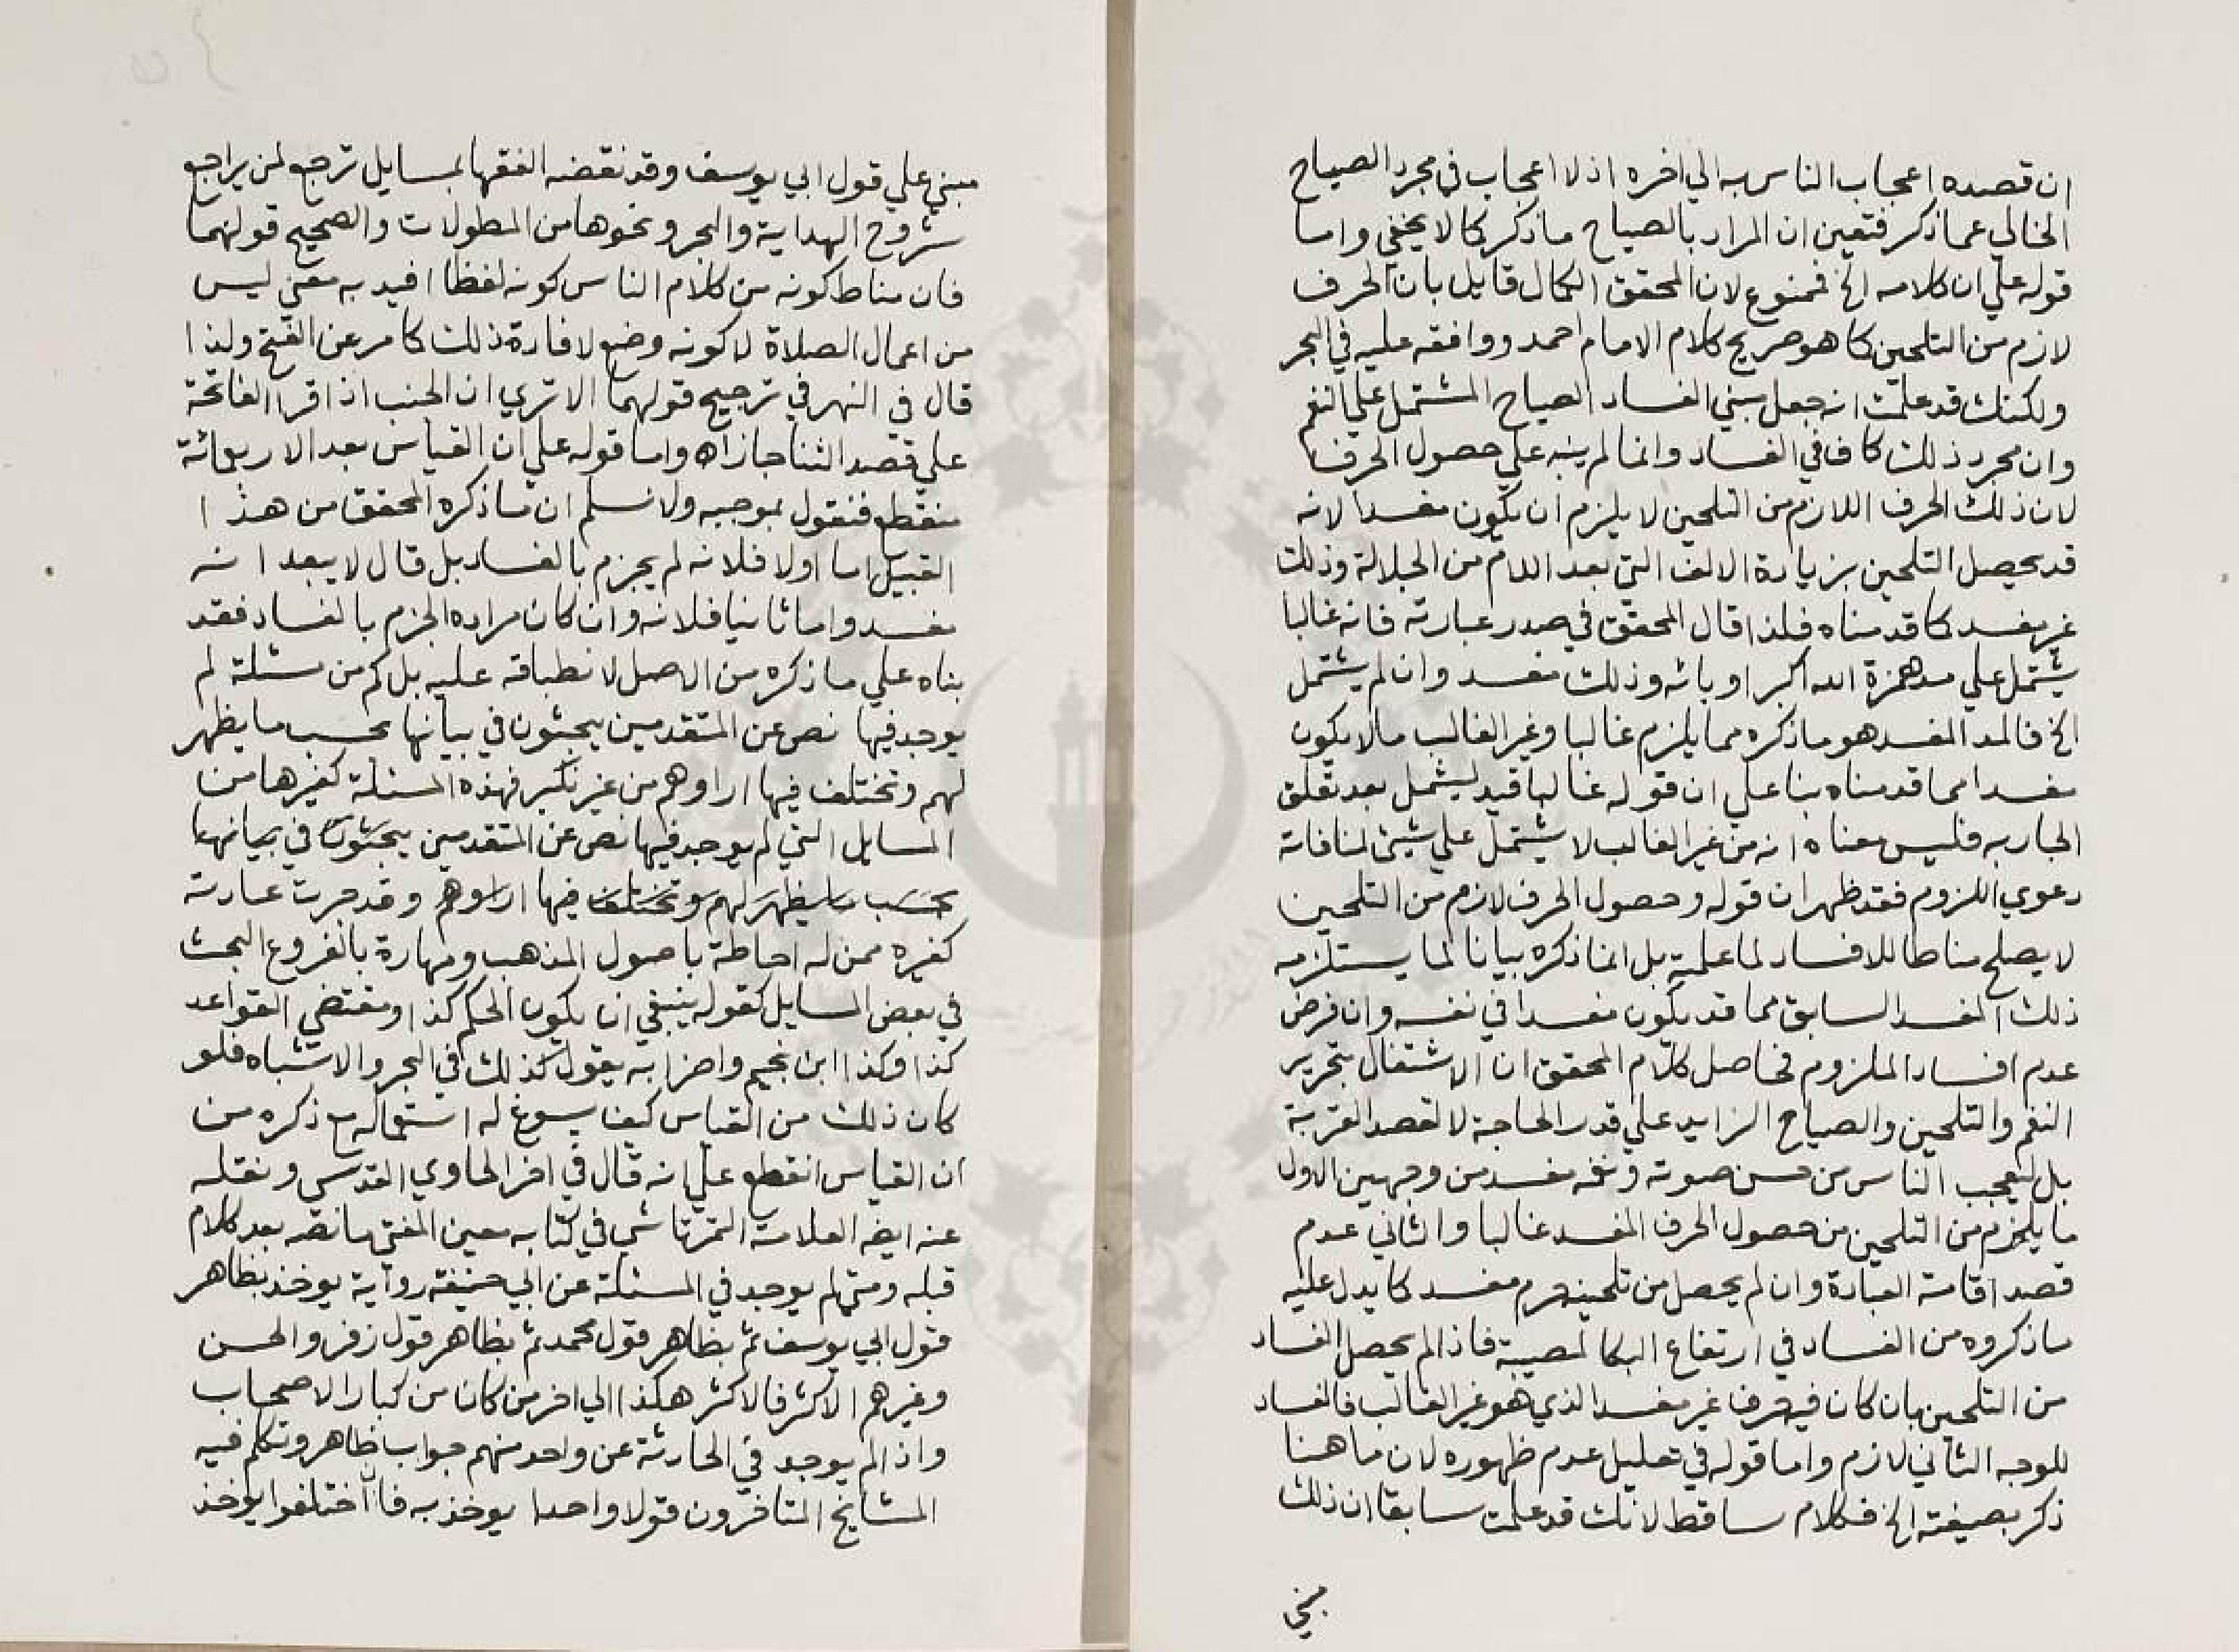 ان قصده اعجاب الناس به الي اخره اذ لا اعجاب في مجرد الصياح
الخالي عما ذكر فتعين ان المراد بالصياح ما ذكر كما لا يخفي واما
قوله علي ان كلامه الخ فممنوع لان المحقق الكمال قايل بان الحرف
لازم من التلحين كما هو صريح كلام الامام احمد ووافقه عليه في البحر
ولكنك قد علمت انه جعل مبني الفساد الصياح المشتمل علي النغم
وان مجرد ذلك كاف في الفساد وانما لم يبنه علي حصول الحرف
لان ذلك الحرف اللازم من التلحين لا يلزم ان يكون مفسدا لانه
قد يحصل التلحين بزيادة الالف التي بعد اللام من الجلالة وذلك
غير مفسد كما قدمناه فلذا قال المحقق في صدر عبارته فانه غالبا
يشتمل علي مد همزة الله اكبر او بائه وذلك مفسد وان لم يشتمل
الخ فالمد المفسد هو ما ذكره مما يلزم غالبا وغير الغالب ما لا يكون
مفسدا مما قدمناه بنا علي ان قوله غالبا قيد ليشتمل بعد تعلق
الجار به فليس معناه انه من غير الغالب لا يشتمل علي شيئ لمنافاته
دعوي اللزوم فقد ظهر ان قوله وحصول الحرف لازم من التلحين
لا يصلح مناطا للافساد لما علمته بل انما ذكره بيانا لما يستلزمه
ذلك المفسد السابق مما قد يكون مفسدا في نفسه وان فرض
عدم افساد الملزوم فحاصل كلام المحقق ان الاشتغال بتحرير
النغم والتلحين والصياح الزايد علي قدر الحاجة لا لقصد القربة
بل ليعجب الناس من حسن صوته ونغمه مفسد من وجهين الاول
ما يلزم من التلحين من حصول الحرف المفسد غالبا والثاني عدم
قصد اقامة العبادة وان لم يحصل من تلحينه حرم مفسد كما يدل عليه
ما ذكروه من الفساد في ارتفاع البكا لمصيبة فاذا لم يحصل الفساد
من التلحين بان كان فيه حرفا غير مفسد الذي هو غير الغالب فالفساد
للوجه الثاني لازم واما قوله في تعليل عدم ظهوره لان ما هنا
ذكر بصيغته الخ فكلام ساقط لانك قد علمت سابقا ان ذلك
مبني
مبني علي قول ابي يوسف وقد نقضه الفقها بمسايل ترجع لمن يراجع
شروح الهداية والبحر ونحوها من المطولات والصحيح قولهما
فان مناط كونه من كلام الناس كونه لفظا افيد به معني ليس
من اعمال الصلاة لا كونه وضع لافادة ذلك كما مر عن الفتح ولذا
قال في النهر في ترجيح قولهما الا تري ان الجنب اذا قرا الفاتحة
علي قصد الثنا جاز اه واما قوله علي ان القياس بعد الاربعمائة
منقطع فنقول بموجبه ولا نسلم ان ما ذكره المحقق من هذا
القبيل اما اولا فلانه لم يجزم بالفساد بل قال لا يبعد انه
مفسد واما ثانيا فلانه وان كان مراده الجزم بالفساد فقد
بناه علي ما ذكره من الاصل لانطباقه عليه بل كم من مسئلة لم
يوجد فيها نص عن المتقدمين يبحثون في بيانها بحسب ما يظهر
لهم وتختلف فيها اراوهم من غير نكير فهذه المسئلة كغيرها من
المسايل التي لم يوجد فيها نص عن المتقدمين يبحثون في بيانها
بحسب ما يظهر لهم وتختلف فيها اراوهم وقد جرت عبارته
كغيره ممن له احاطة باصول المذهب ومهارة بالفروع البحث
في بعض المسايل كقوله ينبغي ان يكون الحكم كذا ومقتضي القواعد
كذا وكذا ابن نجيم واضرابه يقول كذلك في البحر والاشباه فلو
كان ذلك من القياس كيف يسوغ له استعماله مع ذكره من
ان القياس انقطع علي انه قال في اخر الحاوي القدسي ونقله
عنه ايضا العلامة التمرتاشي في كتابه معين المفتي ما نصه بعد كلام
قبله ومتي لم يوجد في المسئلة عن ابي حنيفة رواية يوخذ بظاهر
قول ابي يوسف ثم بظاهر قول محمد ثم بظاهر قول زفر والحسن
وغيرهم الاكثر فالاكثر هكذا الي اخر من كان من كبار الاصحاب
واذا لم يوجد في الحادثة عن واحد منهم جواب ظاهر وتكلم فيه
المشايخ المتاخرون قولا واحدا يوخذ به فان اختلفوا يوخذ